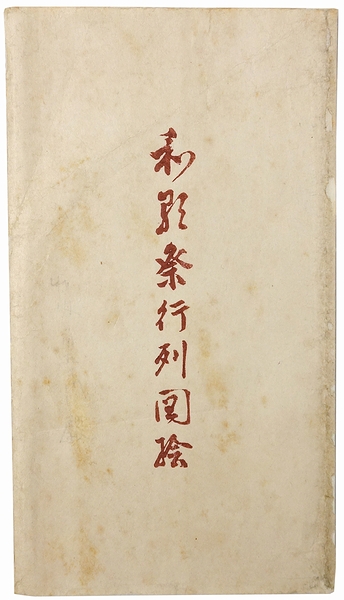 和歌祭行列図絵